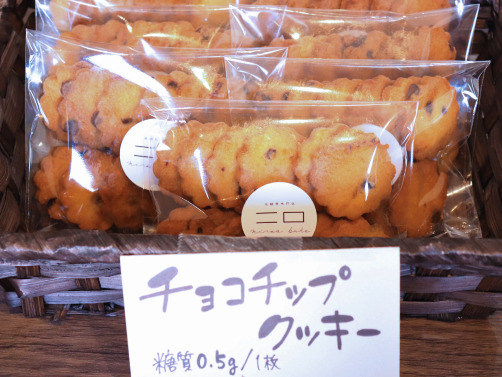 二口
チョコチップ
クッキー
糖質0.5g/1枚